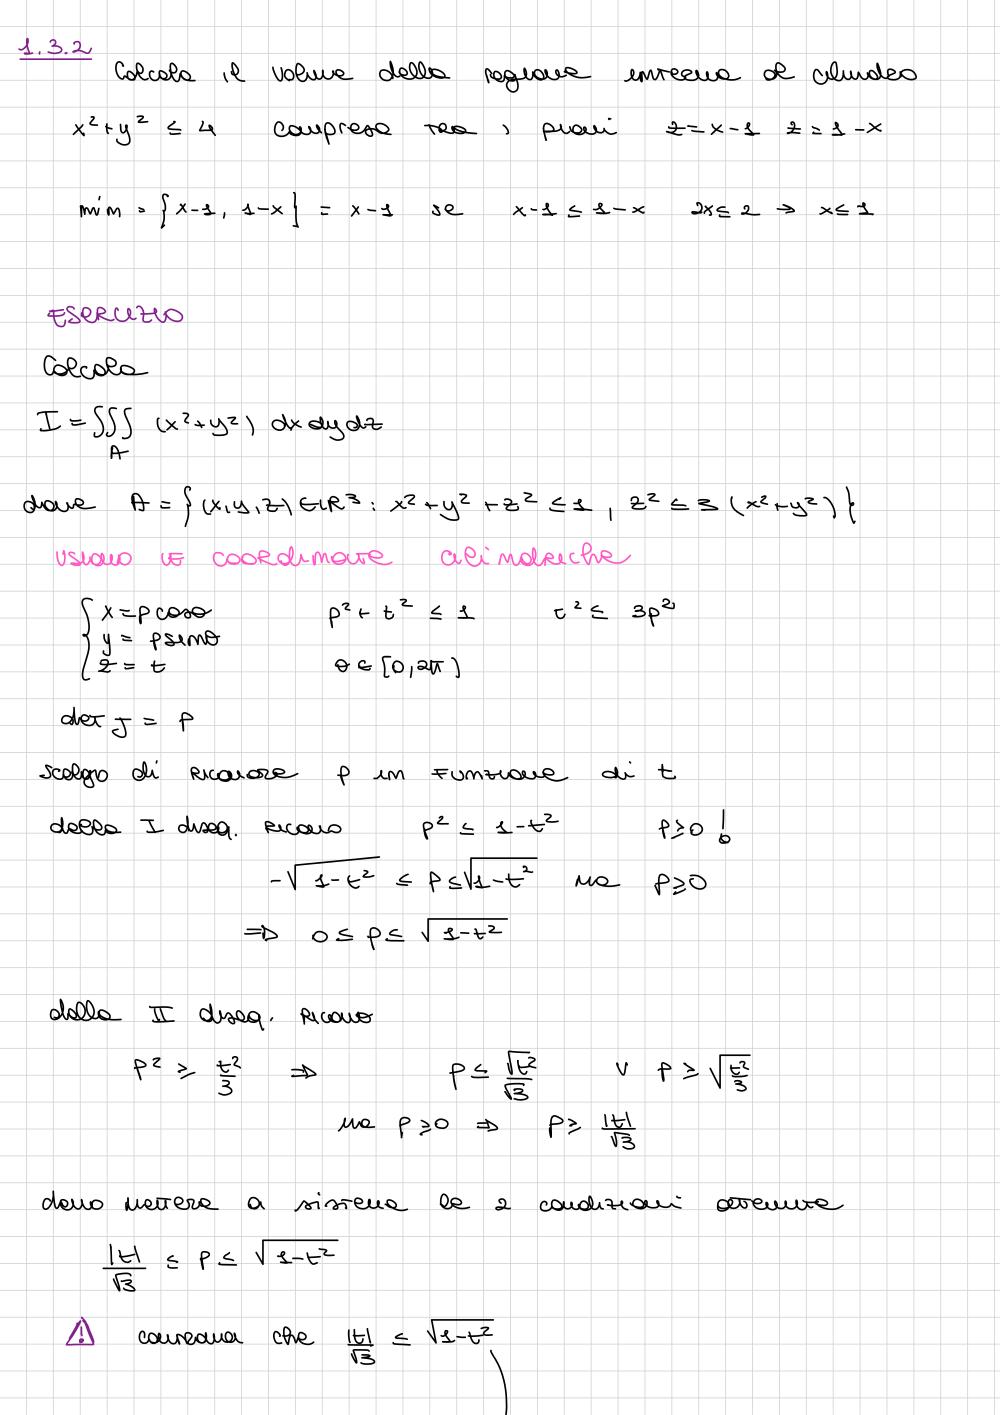 1.3.2
Calcola il volume della regione interna al cilindro
x²+y² ≤ 4 compresa tra i piani z=x-1 z=1-x
min = {x-1, 1-x} = x-1 se x-1 ≤ 1-x 2x ≤ 2 → x ≤ 1
ESERCIZIO
Calcola
I = ∭ (x²+y²) dx dy dz
A
dove A = {(x,y,z) ∈ ℝ³ : x²+y²+z² ≤ 1, z² ≤ 3(x²+y²)}
usiamo le coordinate cilindriche
{ x = ρcosθ ρ²+t² ≤ 1 t² ≤ 3ρ²
y = ρsenθ
z = t θ ∈ [0,2π)
det J = ρ
scelgo di ricavare ρ in funzione di t
dalla I diseq. ricavo ρ² ≤ 1-t² ρ≥0 !
-√(1-t²) ≤ ρ ≤ √(1-t²) ma ρ≥0
⇒ 0 ≤ ρ ≤ √(1-t²)
dalla II diseq. ricavo
ρ² ≥ t²/3 ⇒ ρ ≤ √t²/√3 ∨ ρ ≥ √(t²/3)
ma ρ≥0 ⇒ ρ ≥ |t|/√3
devo mettere a sistema le 2 condizioni ottenute
|t|/√3 ≤ ρ ≤ √(1-t²)
⚠ che |t|/√3 ≤ √(1-t²)